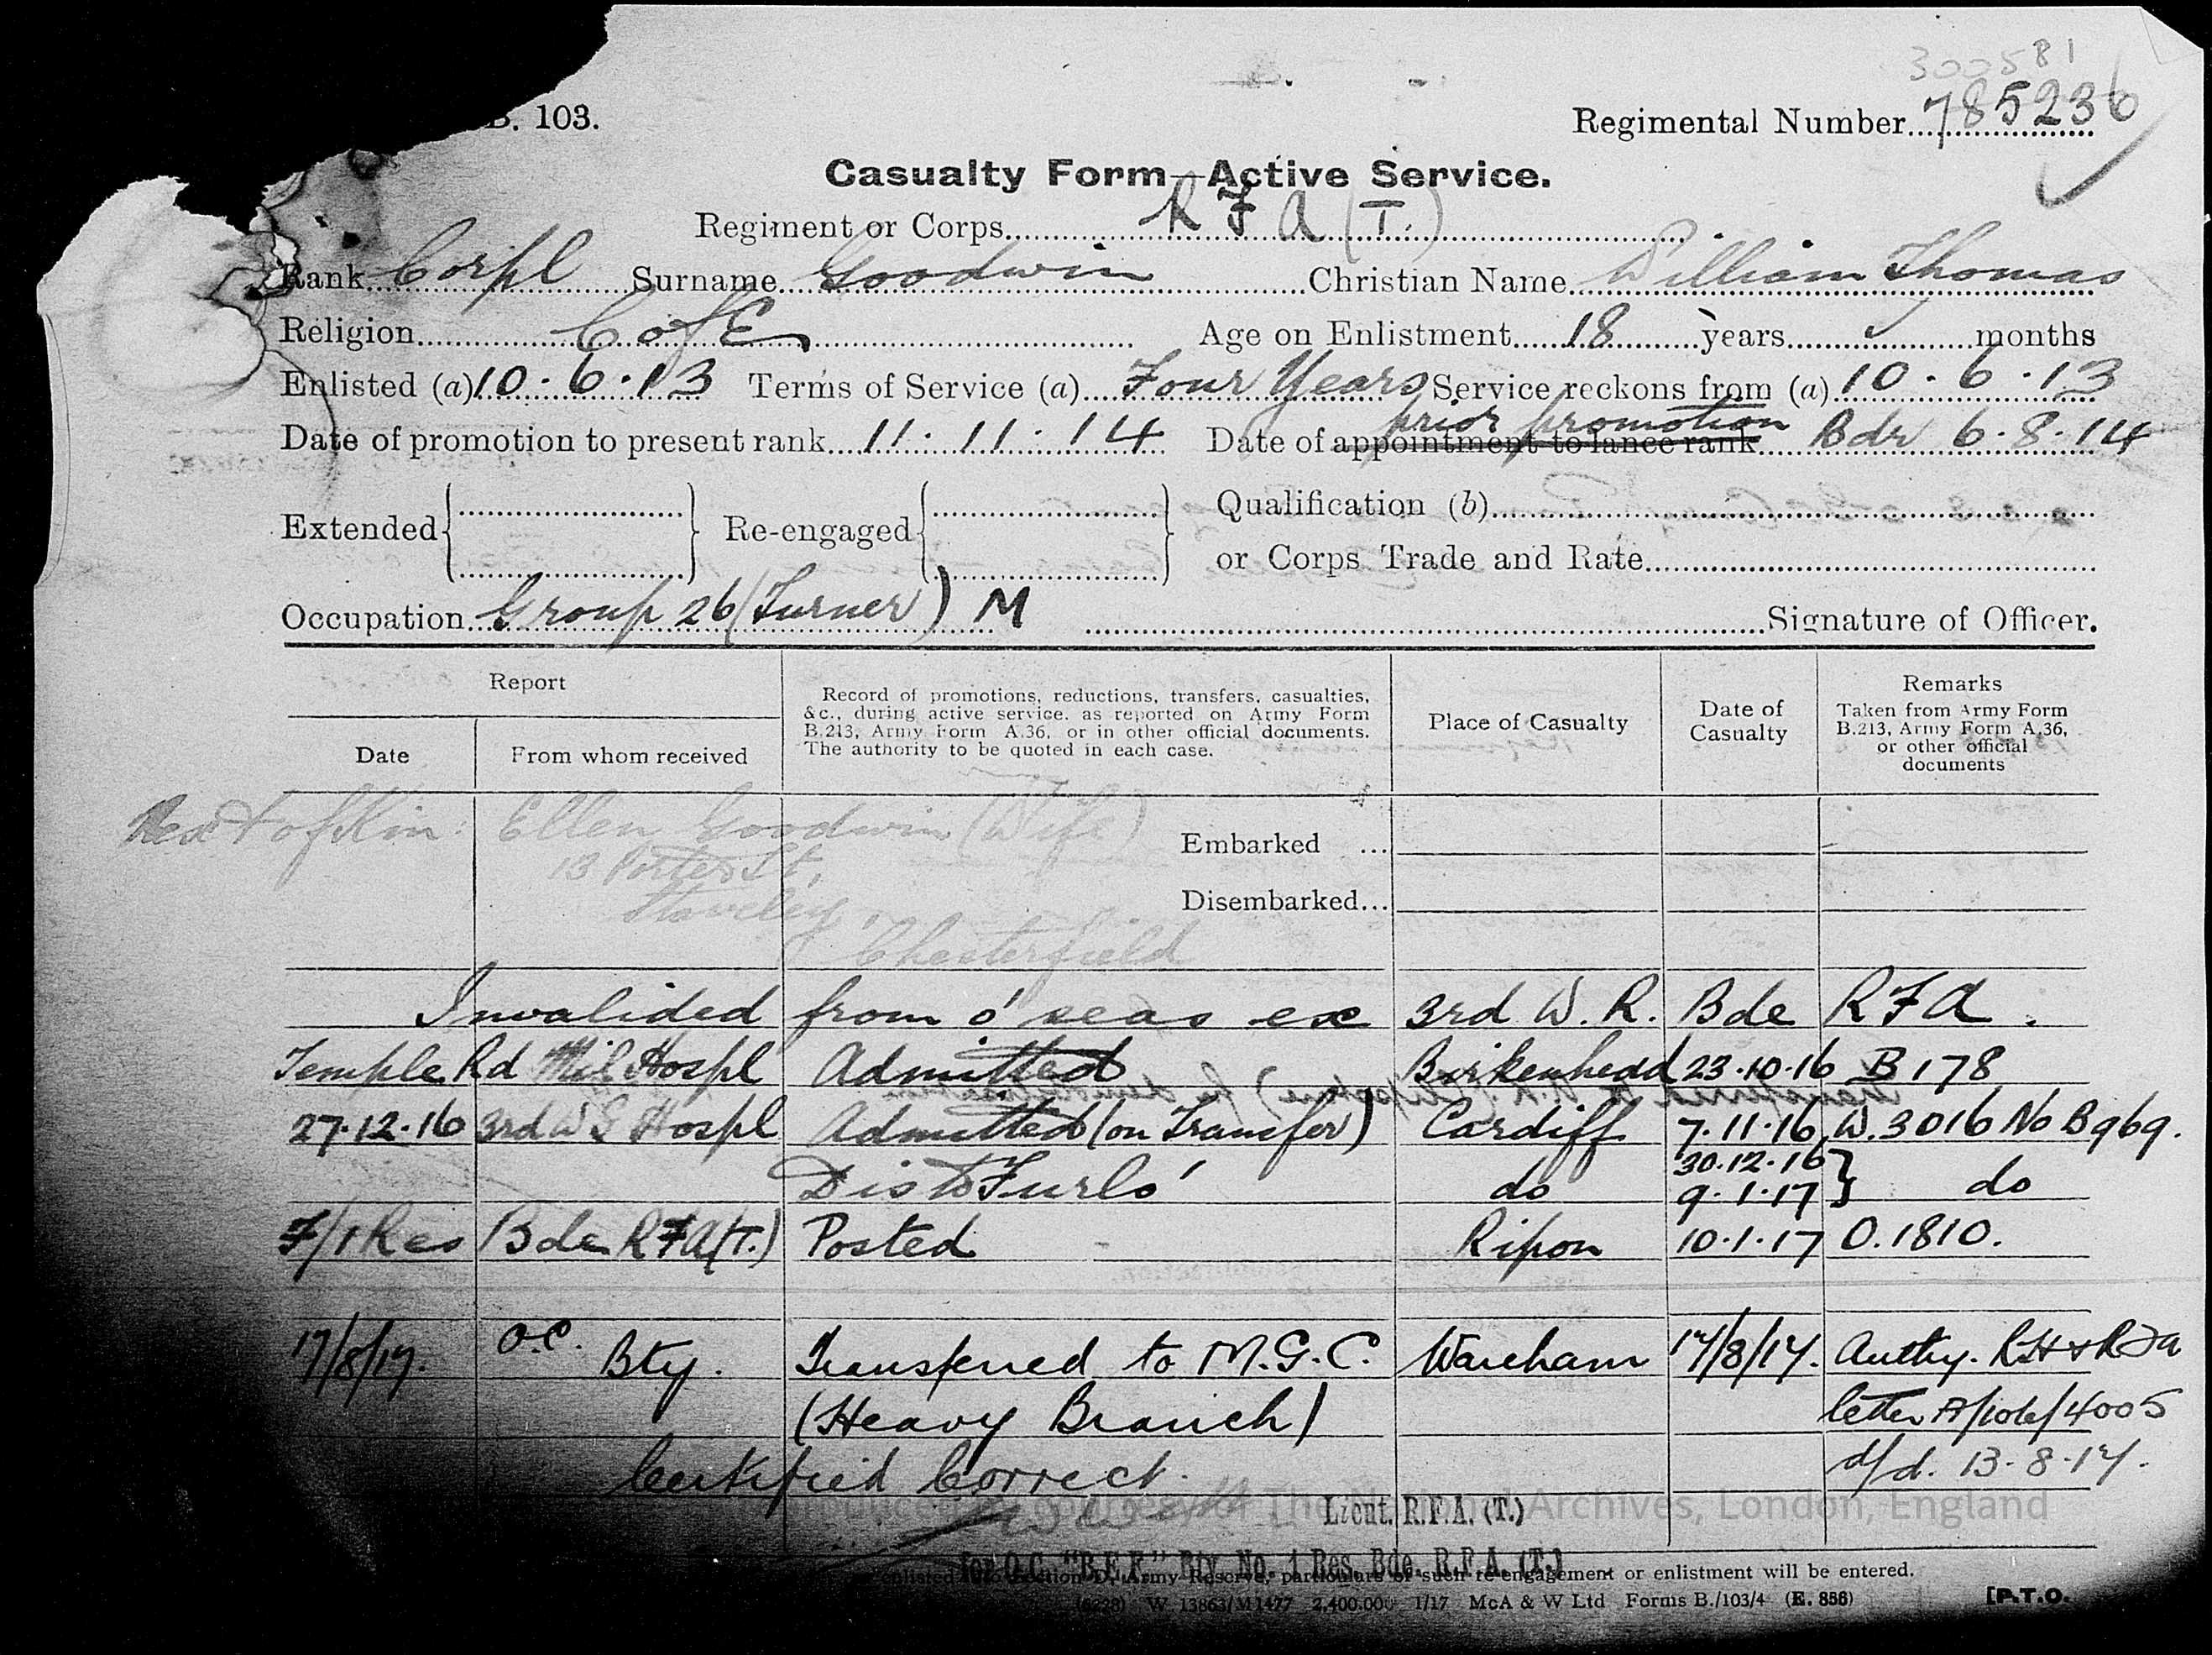 300581
B. 103. Regimental Number 785236
Casualty Form—Active Service.
Regiment or Corps R F A (T.)
Rank Corpl Surname Goodwin Christian Name William Thomas
Religion C of E Age on Enlistment 18 years months
Enlisted (a) 10.6.13 Terms of Service (a) Four Years Service reckons from (a) 10.6.13
prior promotion
Date of promotion to present rank 11.11.14 Date of appointment to lance rank Bdr 6.8.14
Extended Re-engaged Qualification (b)
or Corps Trade and Rate
Occupation Group 26 (Turner) M Signature of Officer.
Report
Date From whom received
Record of promotions, reductions, transfers, casualties,
&c., during active service, as reported on Army Form
B.213, Army Form A.36, or in other official documents.
The authority to be quoted in each case.
Place of Casualty
Date of
Casualty
Remarks
Taken from Army Form
B.213, Army Form A.36,
or other official
documents
Next of Kin: Ellen Goodwin (Wife)
Embarked ...
13 Porter St,
Staveley
Disembarked...
Chesterfield
Invalided from o'seas ex 3rd W. R. Bde R F A.
Temple Rd Mil Hospl Admitted Birkenhead 23.10.16 B 178
27.12.16 3rd W G Hospl Admitted (on Transfer) Cardiff 7.11.16 W.3016 No B969.
Dis to Furlo' do 30.12.16 } do
9.1.17
F/1 Res Bde R F A (T.) Posted Ripon 10.1.17 O.1810.
17/8/17. O.C. Bty. Transferred to M.G.C. Wareham 17/8/17. Authy. RH & RFA
(Heavy Branch) letter 4005
d/d. 13-8-17.
Certified Correct.
Lieut. R.F.A. (T.)
The National Archives, London, England
for O.C. "B.E.F." Bty. No. 1 Res. Bde. R.F.A. (T.)
enlisted Section D, Army Reserve, particulars of such re-engagement or enlistment will be entered.
(6228) W 13863/M1477 2,400,000 1/17 McA & W Ltd Forms B./103/4 (E. 858) [P.T.O.